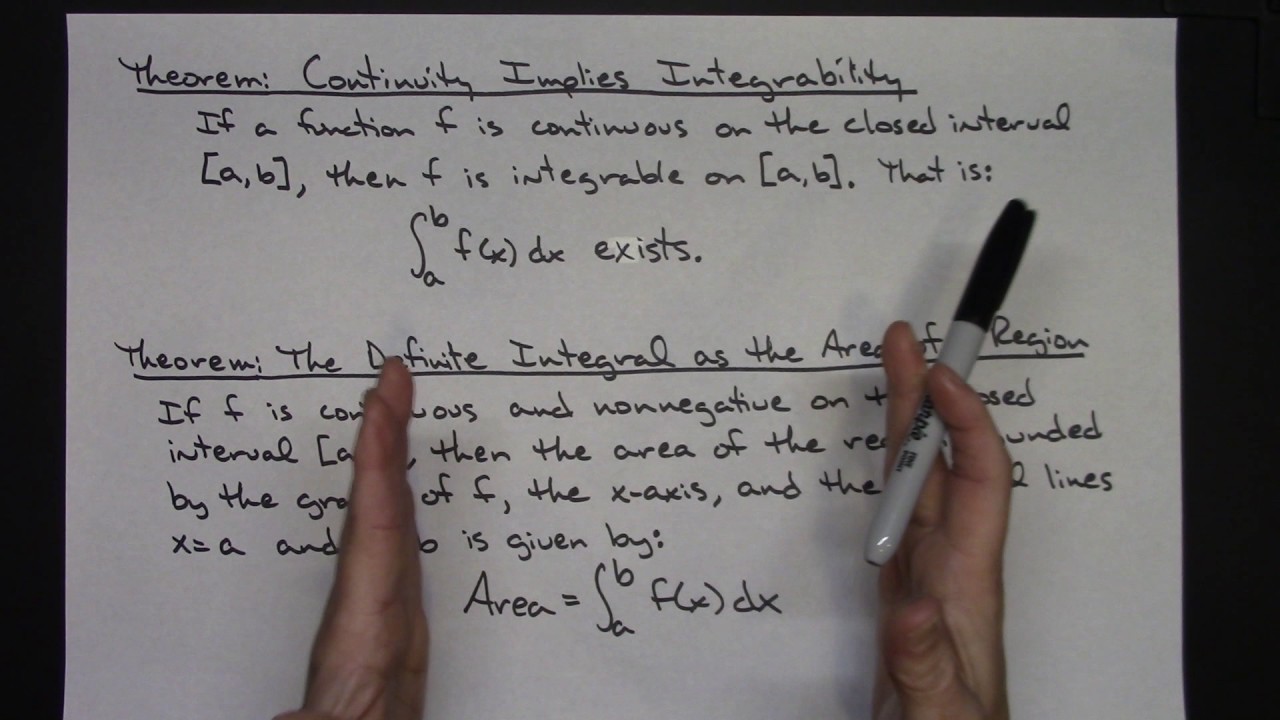 Theorem: Continuity Implies Integrability
If a function f is continuous on the closed interval
[a,b], then f is integrable on [a,b]. That is:
∫_a^b f(x) dx exists.
Theorem: The Definite Integral as the Area of Region
If f is and nonnegative on
interval [a , then the area of the
by the of f, the x-axis, and the lines
x=a and b is given by:
Area = ∫_a^b f(x) dx